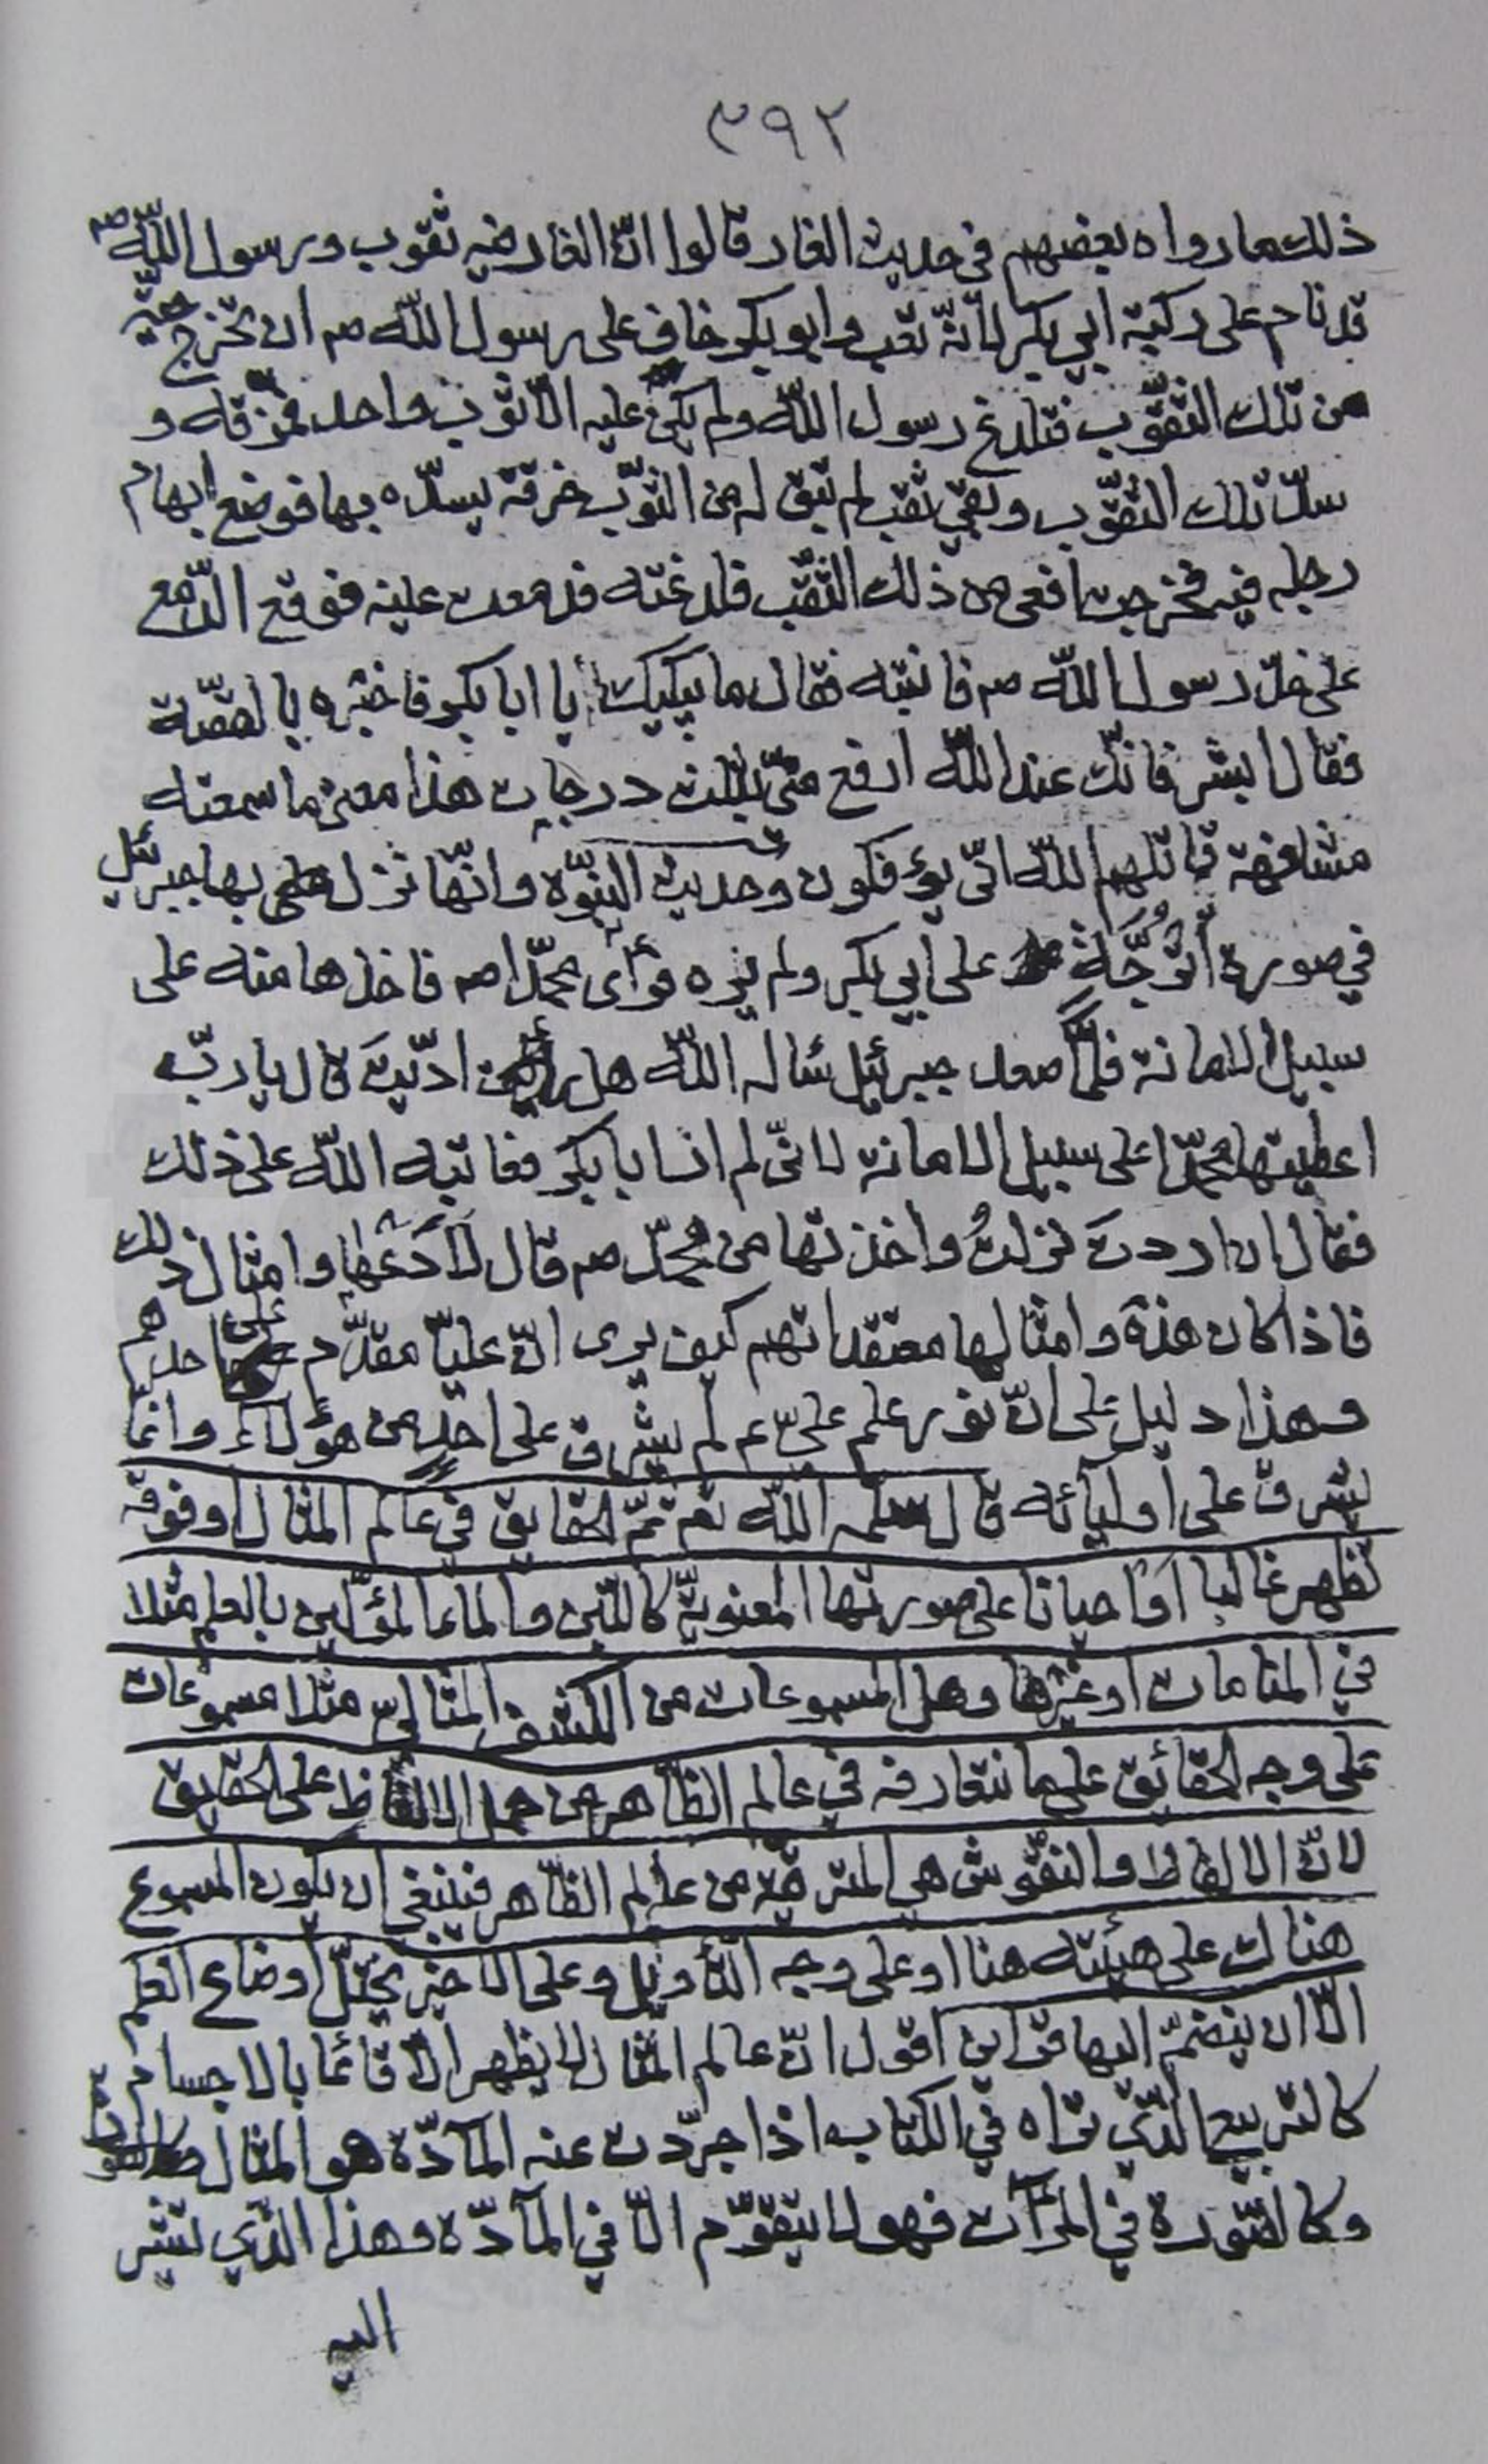 ٣٩٢
ذلك ما رواه بعضهم في حديث الغار قالوا انّ الغار فيه ثقوب ورسول اللّه ص
قد نام على ركبة ابي بكر لانّه تعب وابو بكر خاف على رسول اللّه ص ان تخرج حيّة
من تلك الثقوب فتلدغ رسول اللّه ولم يكن عليه الّا ثوب واحد فمزقه و
سدّ تلك الثقوب وبقي ثقب لم تبق له من الثوب خرقة يسدّه بها فوضع ابهام
رجله فيه فخرجت افعى من ذلك الثقب فلدغته فدمعت عينه فوقع الدّمع
على خدّ رسول اللّه ص فانتبه فقال ما يبكيك يا ابا بكر فاخبره بالقصّة
فقال ابشر فانّك عند اللّه ارفع منّي بثلث درجات هذا معنى ما سمعته
مشافهة قاتلهم اللّه انّى يؤفكون وحديث النبوّة وانّها نزل بها جبرئيل
في صورة أترُجَّة على ابي بكر ولم يره فرأى محمّدا ص فاخذها منه على
سبيل الامانة فلمّا صعد جبرئيل سأله اللّه هل ادّيتَ قال يا ربّ
اعطيتها محمّدا على سبيل الامانة لانّي لم ار ابا بكر فعاتبه اللّه على ذلك
فقال ان اردتَ نزلتُ واخذتها من محمّد ص قال لا دَعْها وامثال ذلك
فاذا كان هذه وامثالها معتقداتهم كيف يرى انّ عليّا مقدّم على احدهم
وهذا دليل على انّ نور علم عليّ ع لم يشرق على احدٍ من هؤلاء وانّما
يشرق على أوليائه قال سلمه اللّه تع ثمّ الحقايق في عالم المثال او فوقه
تظهر غالبا أو احيانا على صورتها المعنويّة كاللّبن والماء المؤلين بالعلم مثلا
في المنامات او غيرها وهل المسموعات من الكشف المثاليّ مثلا مسموعات
على وجه الحقائق على ما نتعارفه في عالم الظّاهر من حمل الالفاظ على الحقايق
لانّ الالفاظ والنقوش هي المترقية من عالم الظّاهر فينبغي ان يكون المسموع
هناك على هيئته هنا او على وجه التّأويل وعلى الاخير يختلّ اوضاع العلم
الّا ان ينضمّ اليها قراين اقول انّ عالم المثال لا يظهر الّا قائما بالاجسام
كالتربيع الّذي تراه في الكتاب اذا جرّدت عنه المآدّة هو المثال
وكالصّورة في المرآت فهو لا يتقوّم الّا في المآدّة وهذا الّذي تشير
اليه